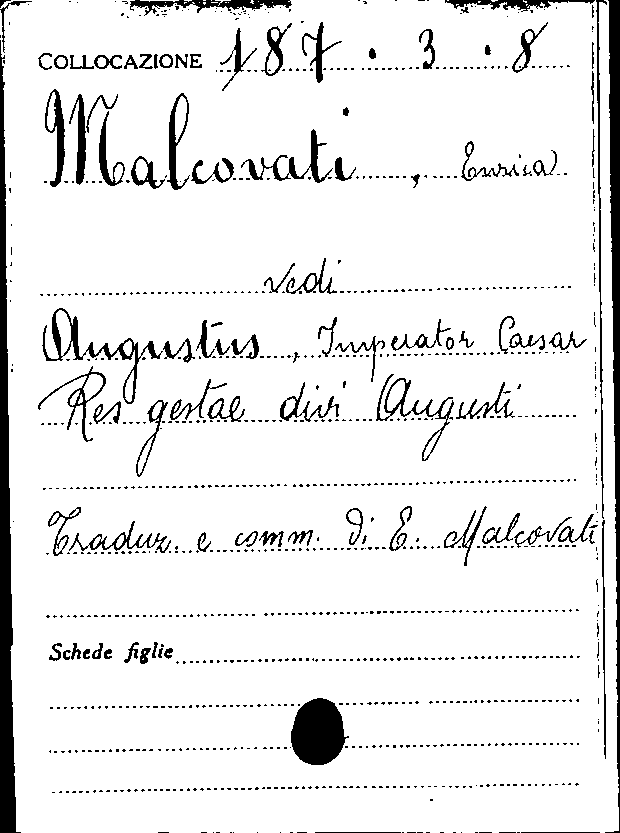 COLLOCAZIONE 187 . 3 . 8
Malcovati, Enrica
vedi
Augustus, Imperator Caesar
Res gestae divi Augusti
Traduz. e comm. di E. Malcovati
Schede figlie